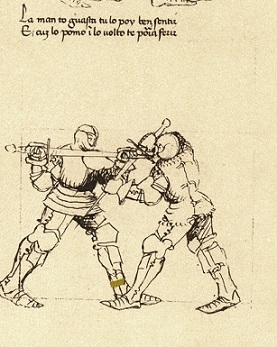 La man to guasta tu lo poy ben sentir
E cuʒ lo pomo ĩ lo volto te poro ferir